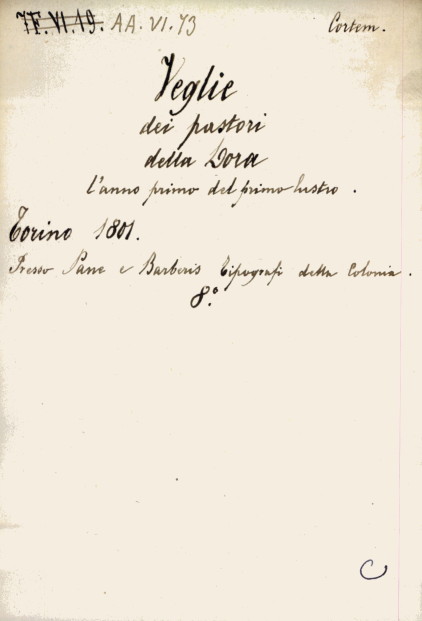 7F.VI.19. AA.VI.73 Cortem.
Veglie
dei pastori
della Dora
l'anno primo del primo lustro.
Torino 1801.
Presso Pane e Barberis Tipografi della Colonia.
8.°
C